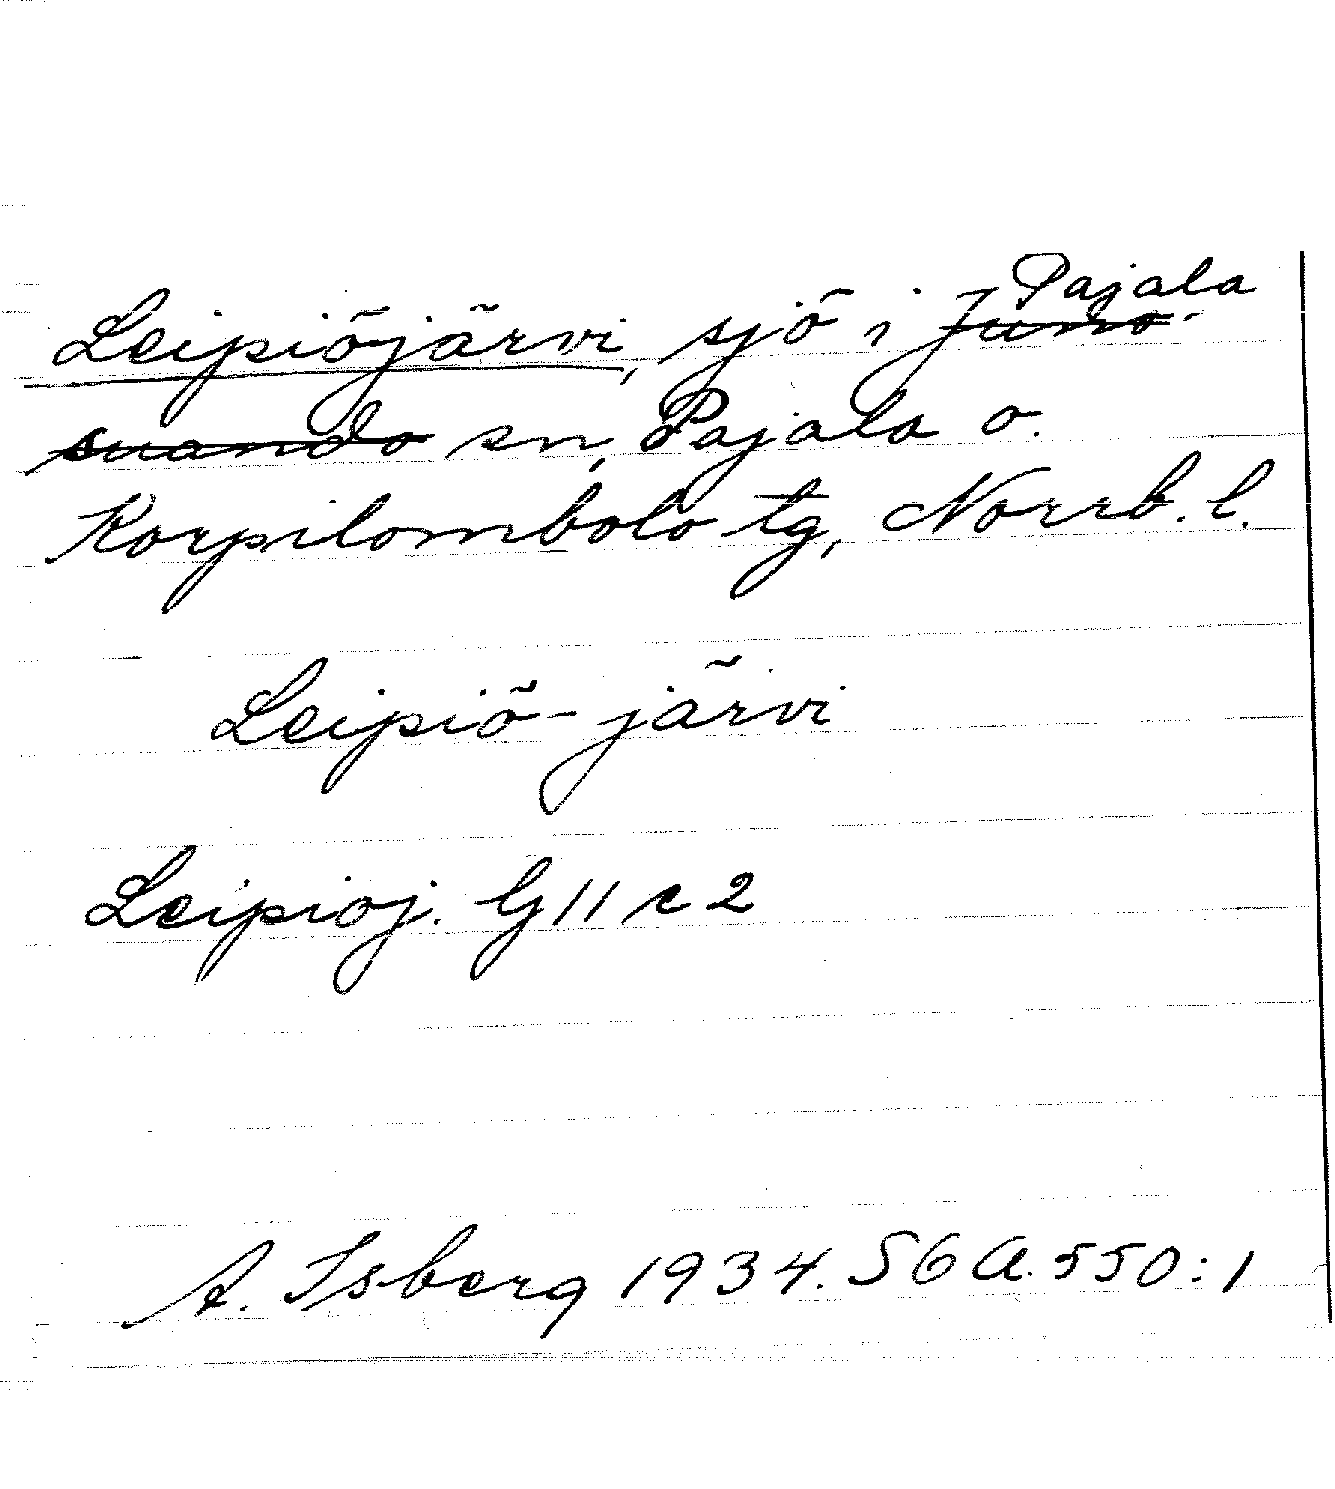 Pajala
Leipiöjärvi, sjö i Juno-
suando sn, Pajala o.
Korpilombolo tg, Norrb. l.
Leipiö-järvi
Leipioj. G 11 c 2
A. Isberg 1934. SGA. 550:1